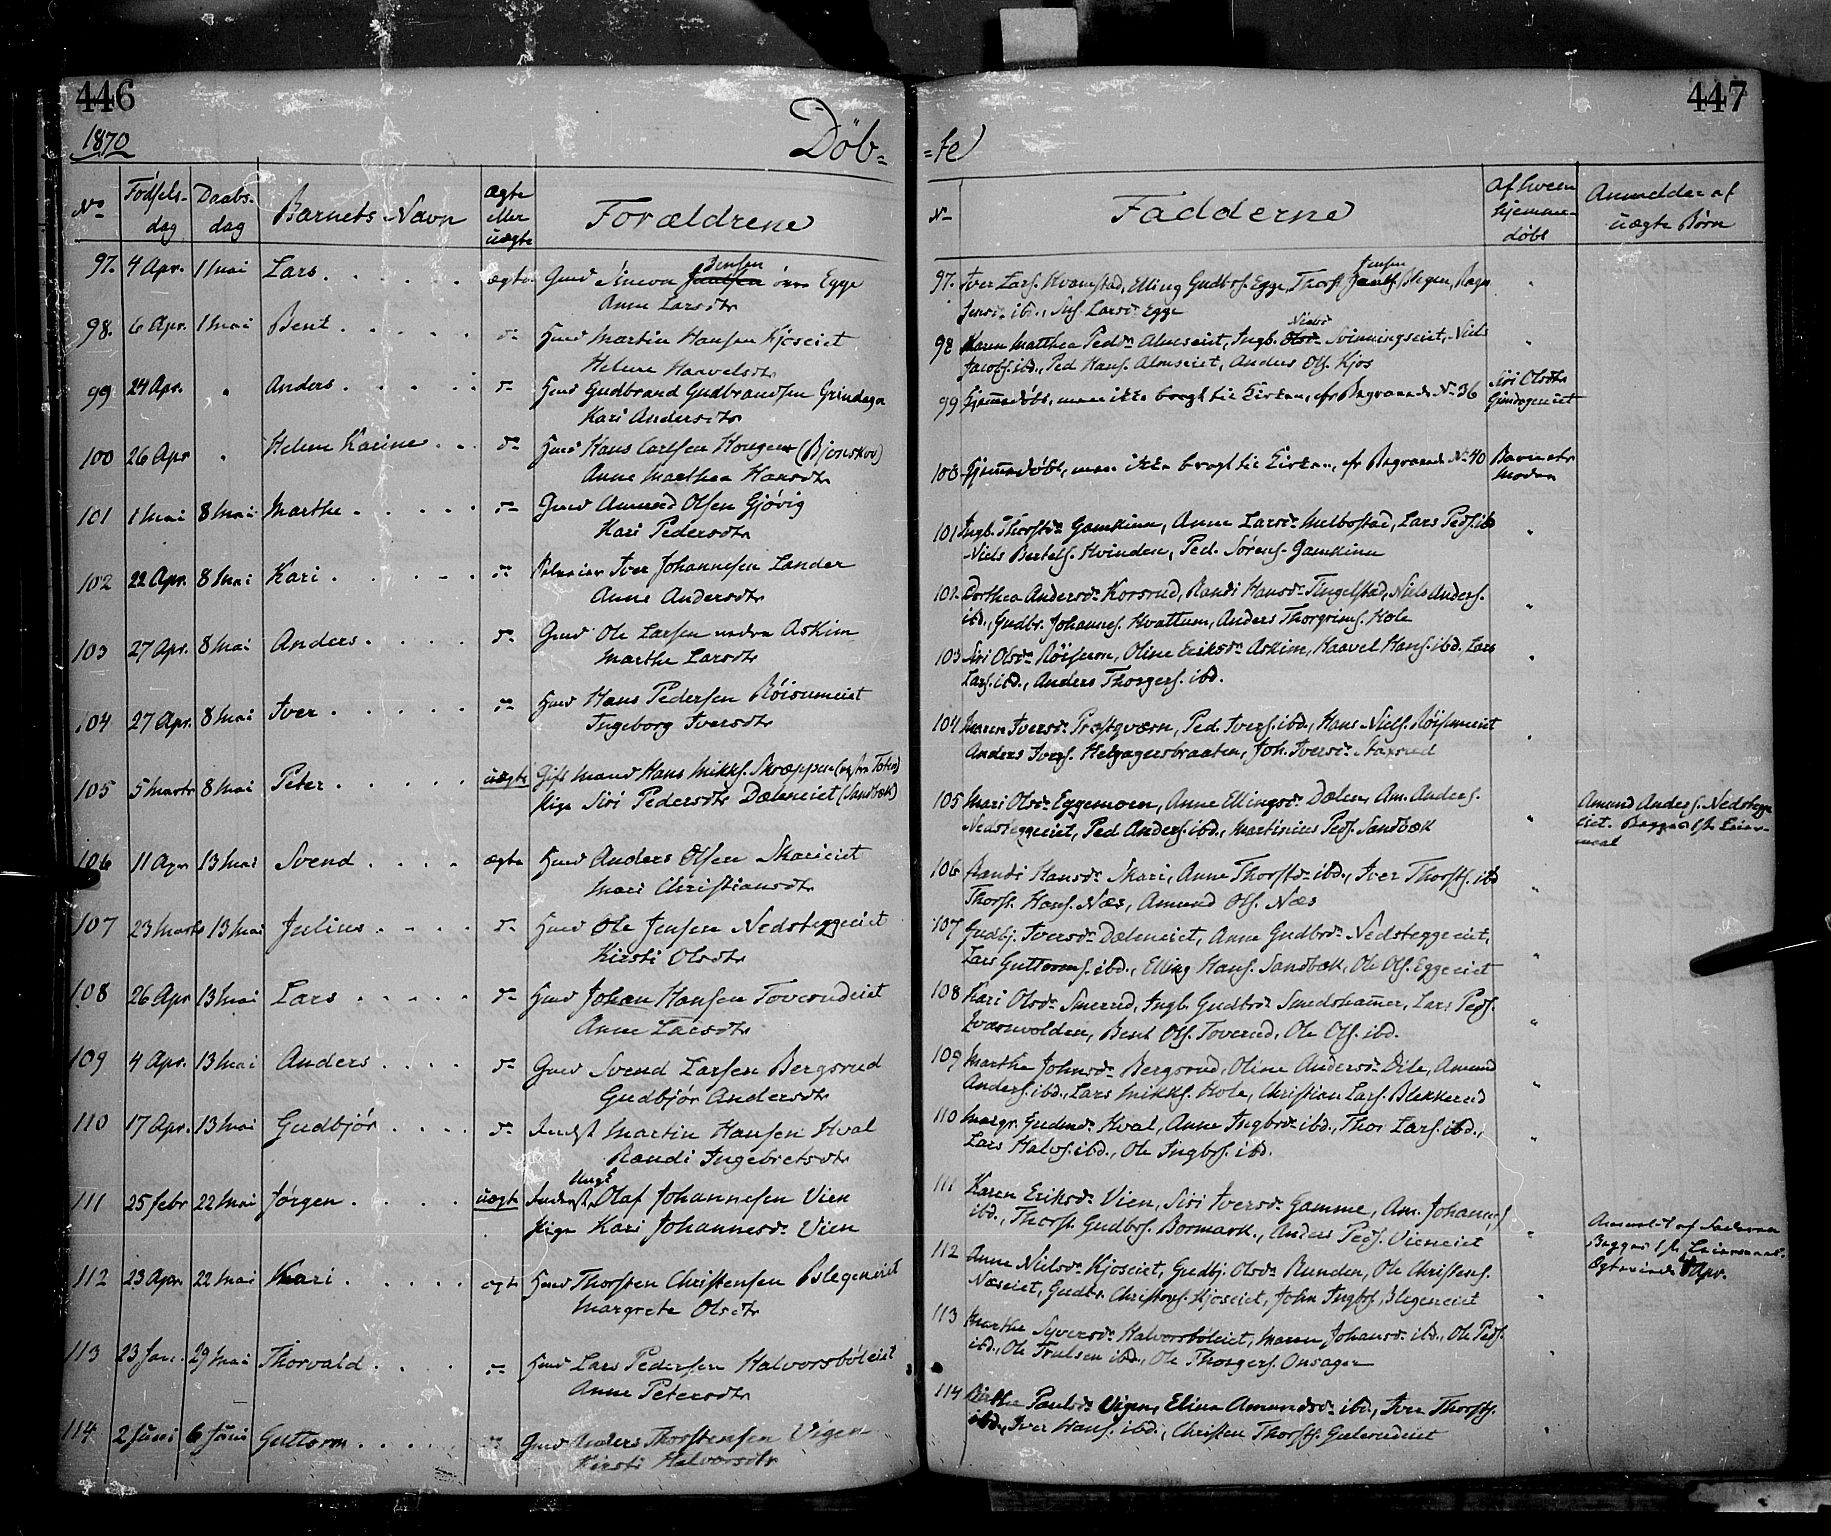 446
1870
Döb-
No
Födsels-
dag
Daabs-
dag
Barnets Navn
ægte
eller
uægte
Forældrene
97. 4 Apr. 1 mai Lars ægte Gmd Simon Jensen övre Egge
Anne Larsdtr
98. 6 Apr. 1 mai Bent do Hmd Martin Hansen Kjoseiet
Helene Haavelsdtr
99 24 Apr. " Anders do Hmd Gudbrand Gudbrandsen Grindager
Kari Andersdtr
100 26 Apr " Helene Karine do Hmd Hans Carlsen Hougen (Bjonskov)
Anne Marthea Hansdtr
101 1 mai 8 mai Marthe do Gmd Amund Olsen Gjövig
Kari Pedersdtr
102 22 Apr. 8 mai Kari do Iver Johannesen Lander
Anne Andersdtr
103 27 Apr. 8 mai Anders do Gmd Ole Larsen nedre Askim
Marthe Larsdtr
104 27 Apr. 8 mai Iver do Hmd Hans Pedersen Röisumeiet
Ingeborg Iversdtr
105 5 Marts 8 mai Peter uægte Gift Mand Hans Mikks. Skræppen (östre Toten)
Pige Siri Pedersdtr Dæleneiet (Sandbæk)
106 11 Apr 13 mai Svend ægte Hmd Anders Olsen Skarieiet
Mari Christiansdtr
107 23 Marts 13 mai Julius do Hmd Ole Jensen Nedsteggeeiet
Kirsti Olsdtr
108 26 Apr 13 mai Lars do Hmd Johan Hansen Toverudeiet
Anne Larsdtr
109 4 Apr. 13 mai Anders do Gmd Svend Larsen Bergsrud
Gudbjör Andersdtr
110 17 Apr. 13 mai Gudbjör do Inderst Martin Hansen Hval
Randi Ingebretsdtr
111 25 Febr 22 mai Jörgen uægte Inderst, Ungk Olaf Johannesen Vien
Pige Kari Johannesdr Vien
112 23 Apr. 22 mai Kari ægte Hmd Thorsten Christensen Blegeneiet
Margrete Olsdtr
113 23 Jan. 29 mai Thorvald do Hmd Lars Pedersen Halvorsböleiet
Anne Petersdtr
114 2 Juni 6 Juni Guttorm do Gmd Anders Thorstensen Vigen
Kirsti Halvorsdtr
447
-te
No
Fadderne
Af hvem
hjemme-
döbt
Anmelder af
uægte Börn
97. Iver Lars. Kvamstad, Elling Gudbrs. Egge, Thorst. Jensen Blegen, Ragn
Jensdr ibd., Larsdr Egge
98 Karen Matthea Pedsdr Almseiet, Ingb. Nielsdr Svinningseiet, Niels
Jacobs. ibd., Ped Hans. Almseiet, Anders Ols. Kjos
99 Hjemmedöbt, men ikke bragt til Kirken, cfr Begravede No 36 Siri Olsdtr
Grindageneiet
100 Hjemmedöbt, men ikke bragt til Kirken, cfr Begravede No 40 Barnets
Moder
101 Ingb. Thorstsdr Gamkinn, Anne Larsdr Melbostad, Lars Peds. ibd
Niels Bertels. Hvinden, Ped. Sörens. Gamkinn
102 Dorthea Andersdr Korsrud, Randi Hansdr Tingelstad, Niels Anders.
ibd., Gudbr. Johannes. Hvattum, Anders Thorgrims. Hole
103 Siri Olsdr Röisum, Oline Eriksdr Askim, Haavel Hans. ibd. Lars
Lars. ibd., Anders Thorgers. ibd.
104 Maren Iversdr Prestqværn, Ped. Ivers. ibd., Hans Niels. Röisumeiet
Anders Ivers. Helgagersbraaten, Joh. Iversdr Staxrud
105 Mari Olsdr Eggemoen, Anne Ellingsdr Dælen, Am. Anders.
Nedsteggeeiet, Ped Anders. ibd., Martinius Peds. Sandbæk
Amund Anders. Nedstegge
eiet. Begges 1ste Leier-
maal
106 Randi Hansdr Skari, Anne Thorstsdr ibd., Iver Thorsts. ibd
Thorst. Hans. Næs, Amund Ols. Næs
107 Gudbj. Iversdr Dæleneiet, Anne Gudbrsdr Nedsteggeeiet,
Lars Guttorms. ibd., Elling Hans. Sandbæk, Ole Ols. Eggeeiet
108 Kari Olsdr Smerud, Ingb. Gudbrsdr Smedshammer, Lars Peds.
Kværnvolden, Bent Ols. Toverud, Ole Ols. ibd.
109 Marthe Johnsdr Bergsrud, Oline Andersdr Dile, Amund
Anders. ibd., Lars Mikks. Hole, Christian Lars. Blekkerud
110 Margr. Gudmdr Hval, Anne Ingbrsdr ibd., Thor Lars. ibd.,
Lars Halvs. ibd., Ole Ingbrs. ibd.
111 Karen Eriksdr Vien, Siri Iversdr Gamme, Am. Johanns
ibd., Thorst. Gudbrs. Bormark, Anders Peds. Vieneiet
Anmeldt af Faderen
Begges 1ste Leiermaal.
Ægteviede Apr.
112 Anne Nielsdr Kjoseiet, Gudbj. Olsdr Runden, Ole Christens.
Næseiet, Gudbr. Christens. Kjoseiet, John Ingbrs. Blegeneiet
113 Marthe Syversdr Halvorsböleiet, Maren Johansdr ibd., Ole Peds.
ibd., Ole Trulsen ibd., Ole Thorgers. Onsager
114 Berthe Paulsdr Vigen, Eline Amundsdr ibd., Iver Thorsts.
ibd., Iver Hans. ibd., Christen Thorsts.